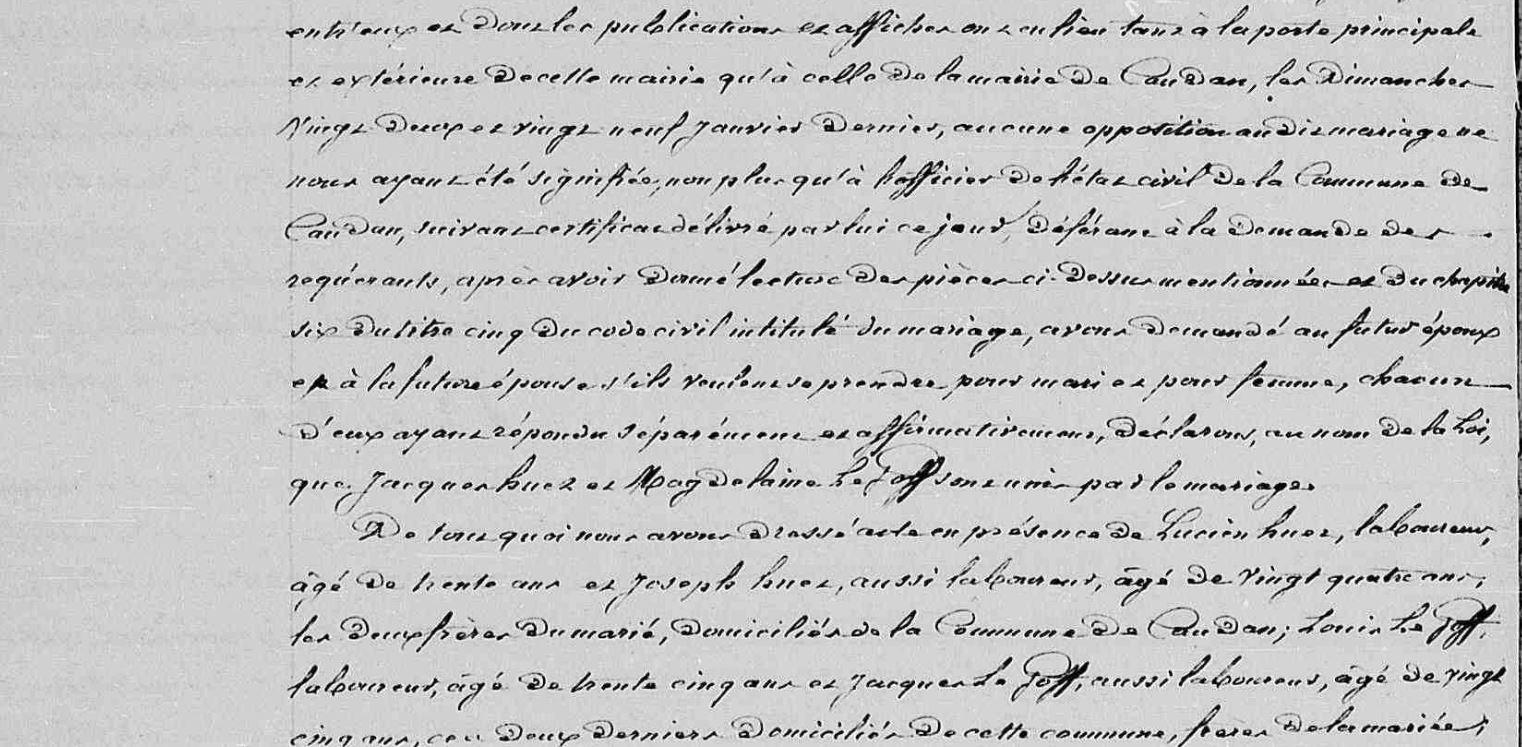 entr'eux et dont les publications et affiches ont eu lieu tant à la porte principale
et extérieure de cette mairie qu'à celle de la mairie de Caudan, les Dimanches
vingt deux et vingt neuf Janvier dernier, aucune opposition au dit mariage ne
nous ayant été signifiée, non plus qu'à l'officier de l'état civil de la Commune de
Caudan, suivant certificat délivré par lui ce jour, déférant à la demande des
requérants, après avoir donné lecture des pièces ci-dessus mentionnées et du chapitre
six du titre cinq du code civil intitulé du mariage, avons demandé au futur époux
et à la future épouse s'ils veulent se prendre pour mari et pour femme, chacun
d'eux ayant répondu séparément et affirmativement, déclarons, au nom de la Loi,
que Jacques huet et Magdelaine Le Goff sont unis par le mariage.
De tout quoi nous avons dressé acte en présence de Lucien huet, laboureur,
âgé de trente ans et Joseph huet, aussi laboureur, âgé de vingt quatre ans,
les deux frères du marié, domiciliés de la Commune de Caudan; Louis Le Goff,
laboureur, âgé de trente cinq ans et Jacques Le Goff, aussi laboureur, âgé de vingt
cinq ans, ces deux derniers domiciliés de cette commune, frères de la mariée,